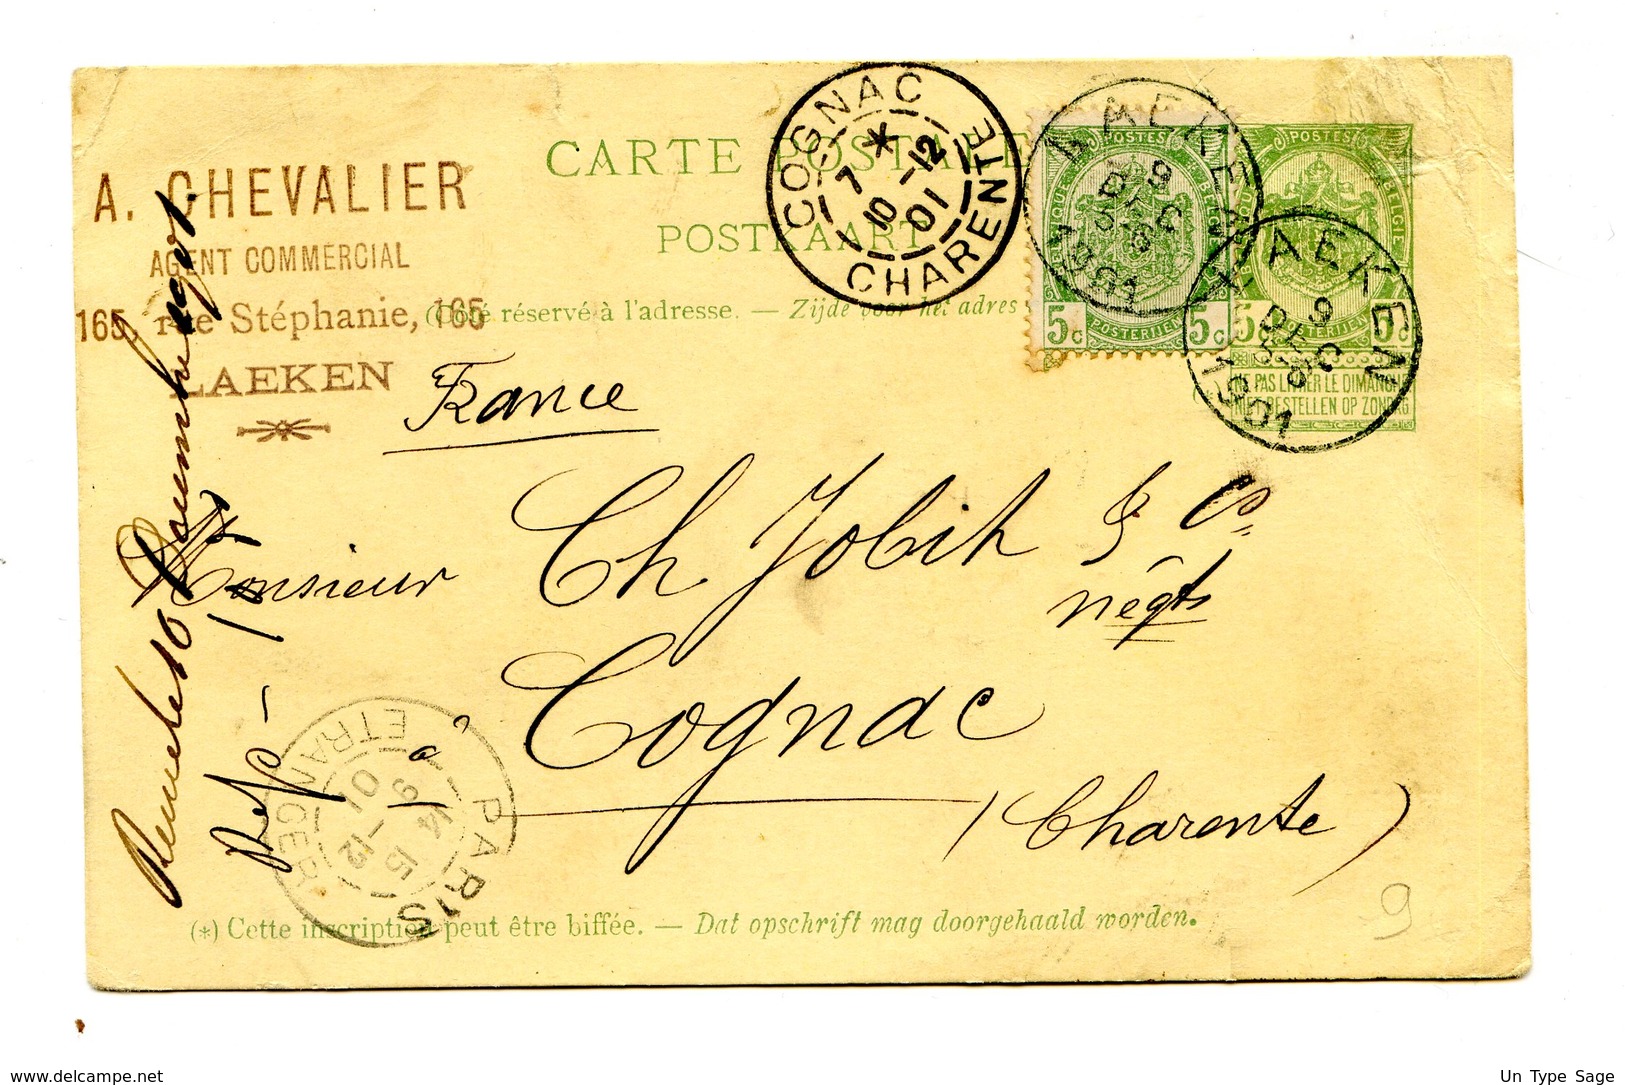 CARTE POSTALE
POSTKAART
(Côté réservé à l'adresse. — Zijde voor het adres
A. CHEVALIER
AGENT COMMERCIAL
165, rue Stéphanie, 165
LAEKEN
COGNAC
7 * 12
10 -12
01
CHARENTE
LAEKEN
9
DEC
1901
LAEKEN
9
DEC
1901
POSTES
BELGIQUE
BELGIË
5c 5c
POSTERIJEN
POSTES
BELGIË
5c 5c
NE PAS LIVRER LE DIMANCHE
NIET BESTELLEN OP ZONDAG
France
Monsieur Ch Jobit & Co.
négts
à Cognac
(Charente)
PARIS
ETRANGER
9 14
15 -12
01
Remelest
Rép -
9
(*) Cette inscription peut être biffée. — Dat opschrift mag doorgehaald worden.
www.delcampe.net
Un Type Sage